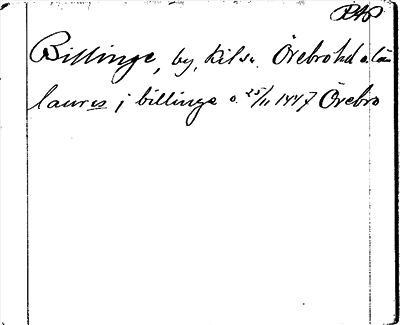 Billinge, by, Kils s. Örebro hd o. län
laures j billinge o. 25/11 1447 Örebro